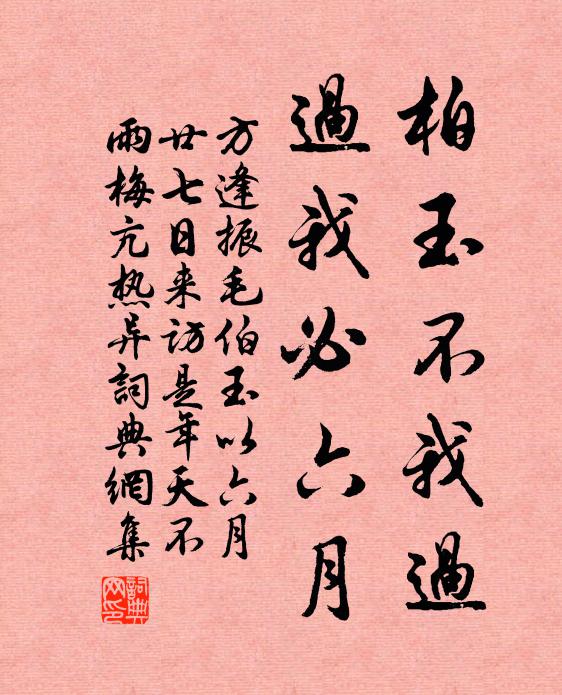 柏玉不我過
過我必六月
方逢振毛伯玉以六月
廿七日来訪是年天不
雨梅亢热异詞典網集
詞典网印